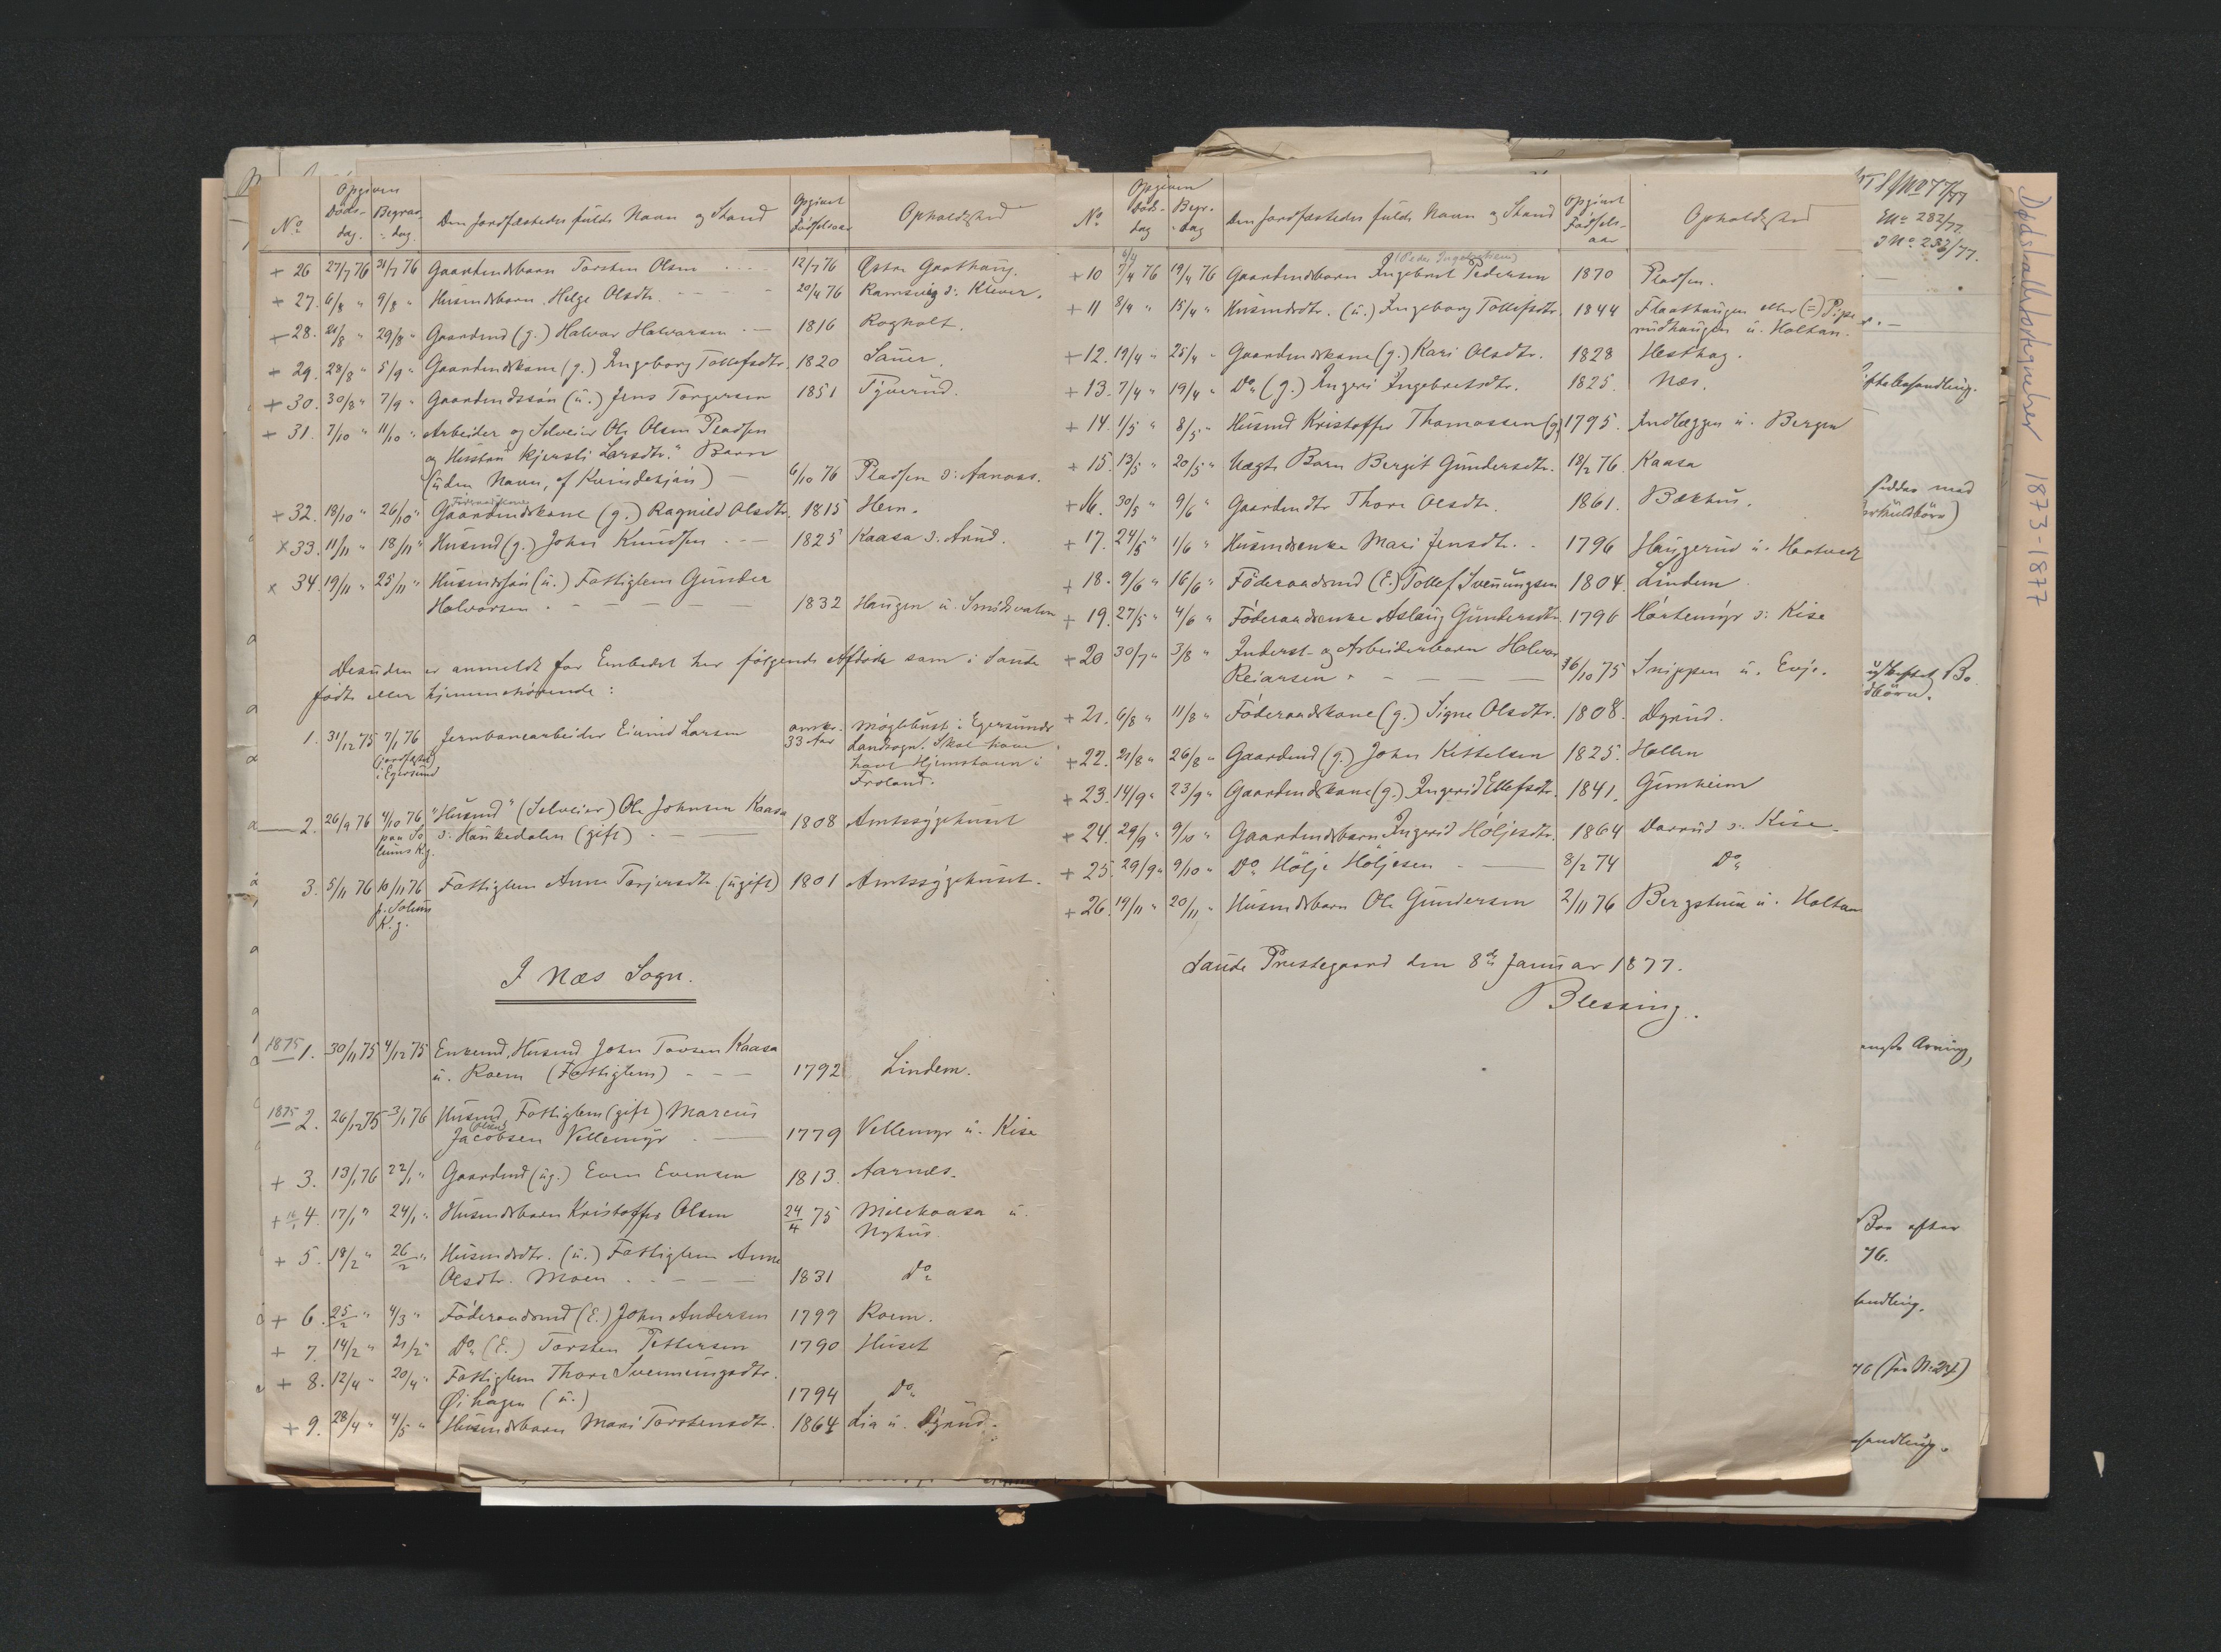 No
Opgiven
Døds-
dag.
Begrav.
dag.
Den Jordfæstedes fulde Navn og Stand
Opgivet
Fødselsaar
Opholdssted
+ 26 27/7 76 31/7 76 Gaardmdsbarn Torsten Olsen 12/7 76 Østre Graathaug.
+ 27. 6/8 " 9/8 " Husmdsbarn Helge Olsdtr. 20/4 76 Ramsvig Klever.
+ 28. 21/8 " 29/8 " Gaardmd (g.) Halvor Halvorsen 1816 Rogholt.
+ 29. 28/8 " 5/9 " Gaardmdskone (g.) Ingeborg Tollefsdtr. 1820 Sauer.
+ 30. 30/8 " 7/9 " Gaardmdssøn (u.) Jens Torgersen 1851 Tyverud.
+ 31. 7/10 " 11/10 " Arbeider og Selveier Ole Olsen Pladsen
og Hustru Kjersti Larsdtr.s Barn
(uden Navn, af Kvindekjøn) 6/10 76 Pladsen Aarnæs.
Føderaadskone
+ 32. 18/10 " 26/10 " Gaardmdskone (g.) Ragnild Olsdtr. 1815 Hem.
x 33. 11/11 " 18/11 " Husmd (g.) John Knudsen 1825 Kaasa
x 34. 19/11 " 25/11 " Husmdssøn (u.) Fattiglem Gunder
Halvorsen 1832 Haugen u.
Desuden er anmeldt for Embedet her følgende Afdøde som i Saude
fødte eller hjemmehørende:
1. 31/12 75 7/1 76 Jernbanearbeider Eivind Larsen omtr. Møglebust i Egersunds
(jordfæstet 33 Aar Landsogn. Skal have
i Egersund havt Hjemstavn i
Froland.
2. 26/9 76 4/10 76 "Husmd" (Selveier) Ole Johnsen Kaasa
paa So Haukedalen (gift) 1808 Amtssygehuset
lums K.g.
3. 5/11 76 10/11 76 Fattiglem Anne Torjersdtr (ugift) 1801 Amtssygehuset.
p. Solums
K.g.
I Næs Sogn.
1875 1. 30/11 75 4/12 75 Enkemd, Husmd John Tovsen Kaasa
u. Roem (Fattiglem) 1792 Lindem.
1875 2. 26/12 75 3/1 76 Husmd Fattiglem (gift) Marcus
Jacobsen Vellemyr 1779 Vellemyr u. Kise
+ 3. 13/1 76 22/1 " Gaardmd (ug.) Even Evensen 1813. Aarnæs.
+ 16/1 4. 17/1 " 24/1 " Husmdsbarn Kristoffer Olsen 24/4 75 Milekaasa u.
Nyhus.
+ 5. 18/2 " 26/2 " Husmdsdtr. (u.) Fattiglem Anne
Olsdtr. Moen 1831 Do
+ 6. 25/2 " 4/3 " Føderaadsmd (E.) John Andersen 1799 Roem.
+ 7. 14/2 " 21/2 " Do (E.) Torsten Pettersen 1790 Huset
+ 8. 12/4 " 20/4 " Fattiglem Thore Svenningsdtr.
Øihagen (u.) 1794 Do
+ 9. 28/4 " 4/5 " Husmdsbarn Mari Torstensdtr. 1864 Lia u. Dyrud.
No
Opgiven
Døds-
dag
Begr.
dag
Den Jordfæstedes fulde Navn og Stand
Opgivet
Fødsels-
aar
Opholdssted
(Peder Ingebretsens)
+ 10 7/4 76 19/4 76 Gaardmdsbarn Ingebret Pedersen 1870 Pladsen.
+ 11 8/4 " 15/4 " Husmdsdtr. (u.) Ingeborg Tollefsdtr. 1844 Flaathaugen eller (=) Pipe
rudhaugen u. Holtan.
+ 12. 19/4 " 25/4 " Gaardmdskone (g.) Kari Olsdtr. 1828 Hesthag.
+ 13. 7/4 " 19/4 " Do (g.) Ingeri Ingebretsdtr. 1825. Næs.
+ 14. 1/5 " 8/5 " Husmd Kristoffer Thomassen (g.) 1795. Indlæggen u. Bergen
+ 15. 13/5 " 20/5 " Uægte Barn Bergit Gundersdtr. 13/2 76. Kaasa
+ 16. 30/5 " 9/6 " Gaardmdtr Thore Olsdtr. 1861. Bækhus.
+ 17. 24/5 " 1/6 " Husmdsenke Mari Jensdtr. 1796 Haugerud u. Hartvedt
+ 18. 9/6 " 16/6 " Føderaadsmd (E.) Tollef Svenungsen 1804. Lindem.
+ 19. 27/5 " 4/6 " Føderaadsenke Aslaug Gundersdtr. 1796 Hørtemyr Kise
+ 20 30/7 " 3/8 " Inderst- og Arbeiderbarn Halvor
Reiarsen 16/10 75 Snippen u. Evje.
+ 21. 6/8 " 11/8 " Føderaadskone (g.) Signe Olsdtr. 1808. Dyrud.
+ 22. 21/8 " 26/8 " Gaardmd (g.) John Kittelsen 1825. Hollen
+ 23. 14/9 " 23/9 " Gaardmdskone (g.) Ingerid Ellefsdtr. 1841. Gunheim
+ 24. 29/9 " 9/10 " Gaardmdsbarn Ingerid Høljesdtr. 1864 Dorrud Kise
+ 25. 29/9 " 9/10 " Do Hølje Høljesen 8/2 74 Do
+ 26. 19/11 " 20/11 " Husmdsbarn Ole Gundersen 2/11 76 Bergstua u. Holtan
Saude Prestegaard den 8de Januar 1877.
Blessing.
No 282/77.
J No 283/77.
iftebehandling.
sidder med
børn.
angst Arving,
Boe efter
76.
handling.
handling.
Dødsfallsfortegnelser 1873-1877